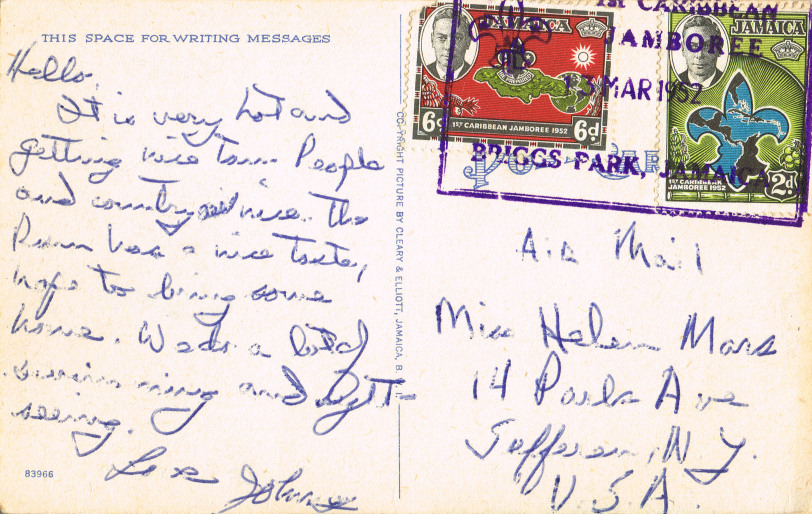 THIS SPACE FOR WRITING MESSAGES
Hello,
It is very hot and
getting nice tan. People
and country nice. The
Rum has a nice taste,
hope to bring some
home. We do a lot of
swimming and sight-
seeing.
Love
Johnny
83966
COPYRIGHT PICTURE BY CLEARY & ELLIOTT, JAMAICA, B.
JAMAICA
6d 1ST CARIBBEAN JAMBOREE 1952 6d
JAMAICA
1ST CARIBBEAN
JAMBOREE 1952 2d
1st CARIBBEAN
JAMBOREE
13 MAR 1952
BRIGGS PARK, JAMAICA
Air Mail
Miss Helen Mars
14 Park Ave
Jefferson, N.Y.
U.S.A.